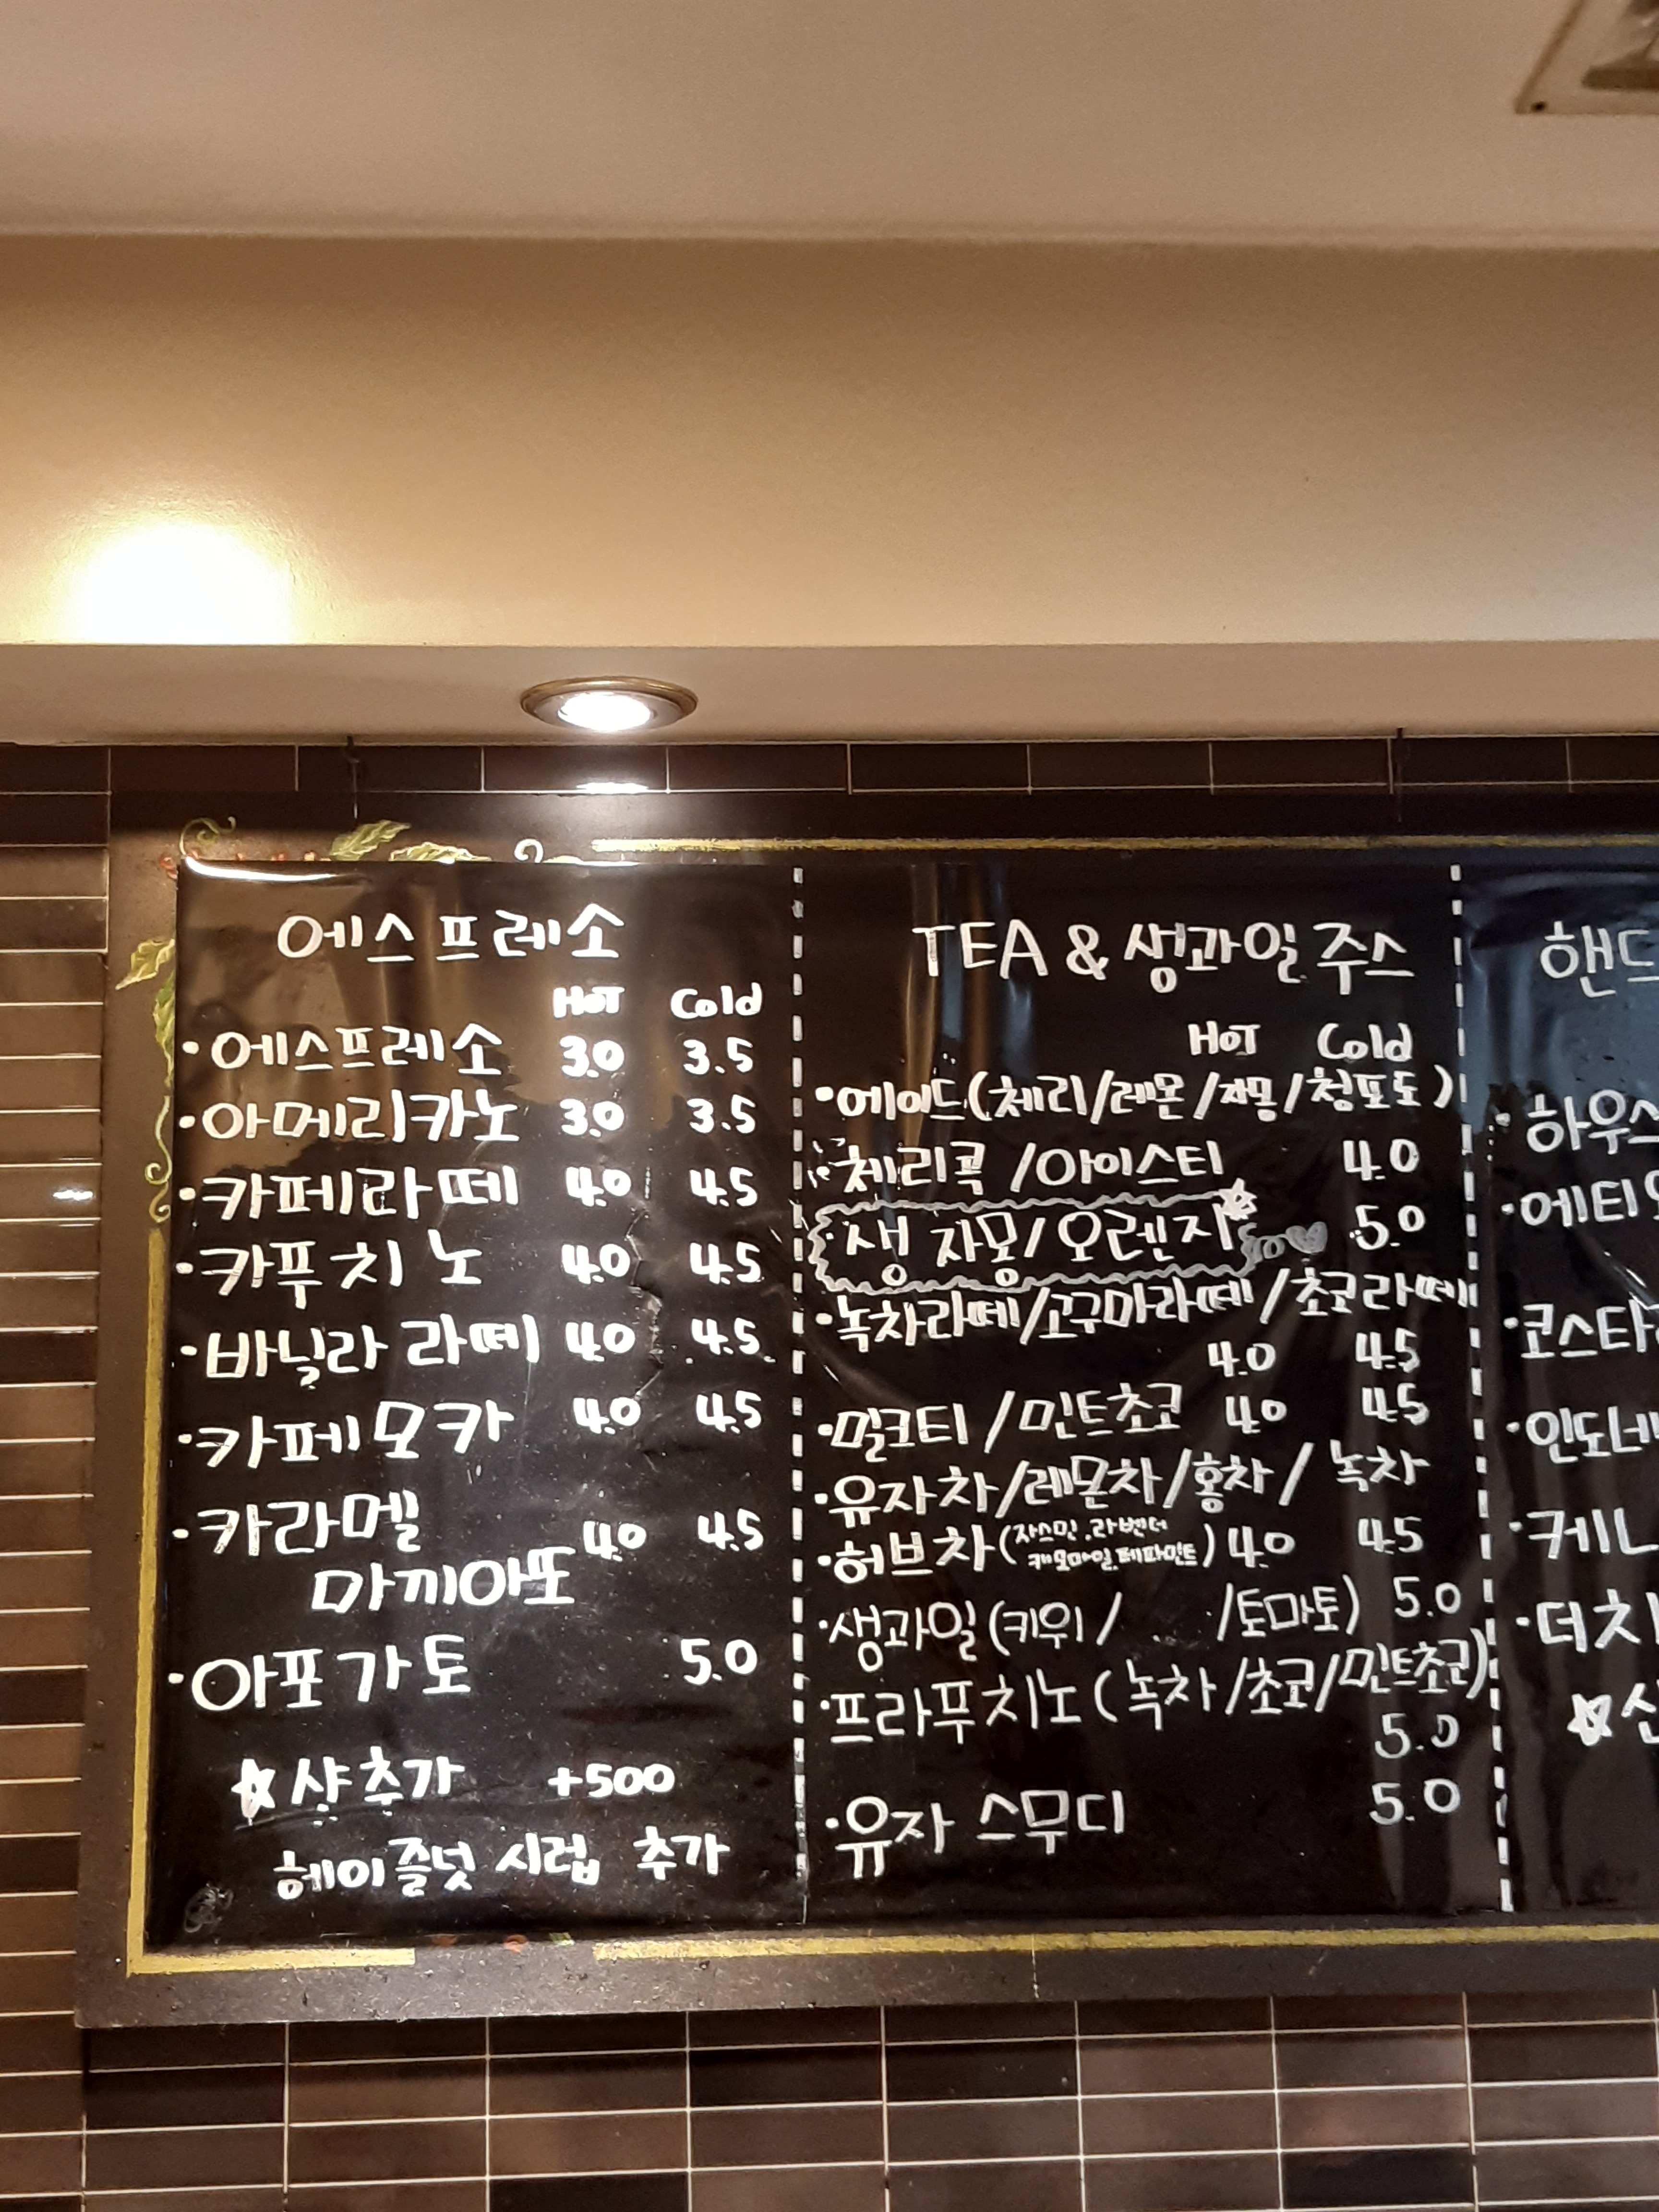 에스프레소
Hot Cold
·에스프레소 3.0 3.5
·아메리카노 3.0 3.5
·카페라떼 4.0 4.5
·카푸치노 4.0 4.5
·바닐라 라떼 4.0 4.5
·카페모카 4.0 4.5
·카라멜
마끼아또 4.0 4.5
·아포가토 5.0
☆샷추가 +500
헤이즐넛 시럽 추가
TEA & 생과일 주스
HOT Cold
·에이드(체리/레몬/자몽/청포도)
·체리콕/아이스티 4.0
·생 자몽/오렌지 5.0
·녹차라떼/고구마라떼/초코라떼
4.0 4.5
·밀크티/민트초코 4.0 4.5
·유자차/레몬차/홍차/녹차
·허브차(자스민.라벤더
캐모마일.페파민트) 4.0 4.5
·생과일(키위/ /토마토) 5.0
·프라푸치노(녹차/초코/민트초코)
5.0
·유자 스무디 5.0
핸드
·하우스
·에티오
·코스타
·인도네
·케냐
·더치